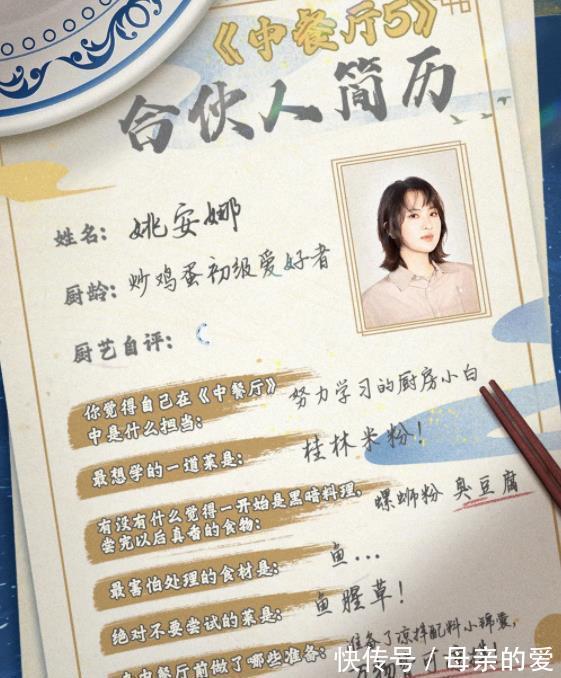 《中餐厅5》
合伙人简历
姓名：姚安娜
厨龄：炒鸡蛋初级爱好者
厨艺自评：
你觉得自己在《中餐厅》
中是什么担当：
努力学习的厨房小白
最想学的一道菜是：
桂林米粉！
有没有什么觉得一开始是黑暗料理，
尝完以后真香的食物：
螺蛳粉 臭豆腐
最害怕处理的食材是：
鱼...
绝对不要尝试的菜是：
鱼腥草！
中餐厅前做了哪些准备：
准备了凉拌配料小锦囊，
快传号 / 母亲的爱